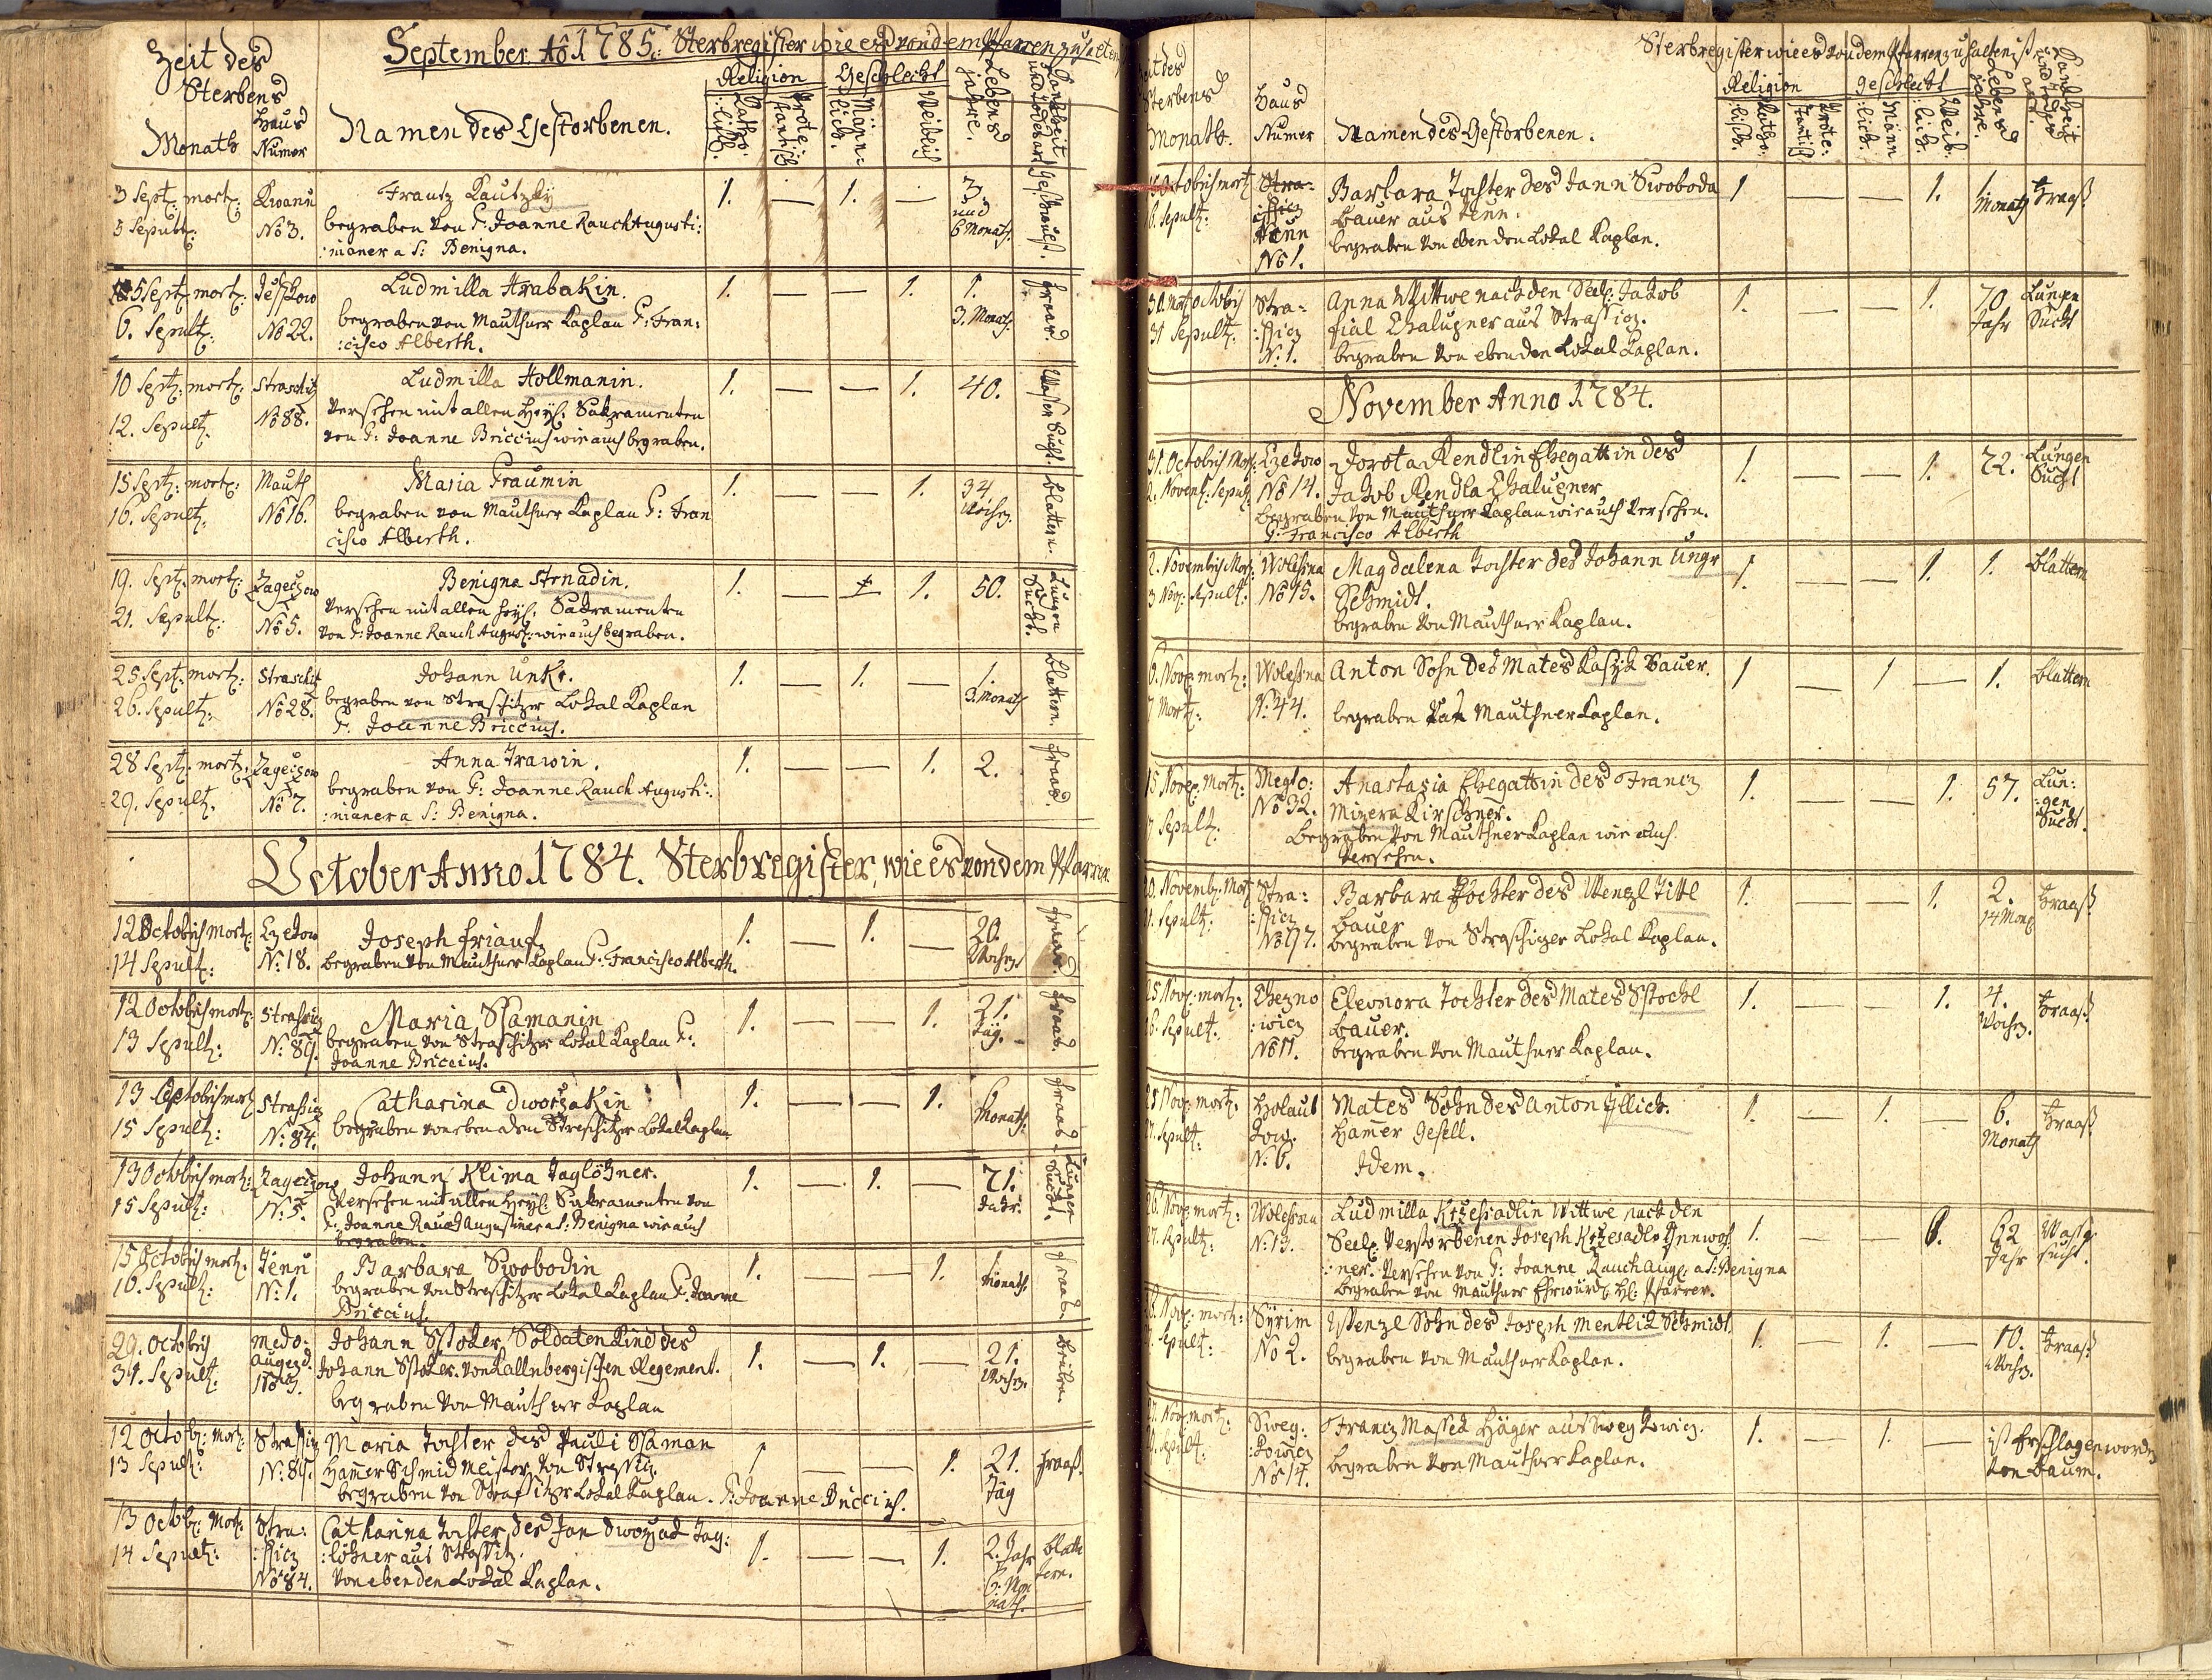 Zeit des
Sterbens
Monath
Haus
Numer
September Aō 1785. Sterbregister wie es von dem Pfarrer zu halten
Namen des Gestorbenen.
Religion
Catho:
:lisch.
Prote:
stantisch
Geschlecht
Män:
lich.
Weiblich
Lebens
jahre.
Krankheit
und Todesart
3 Sept: mort:
5 Sepult:
No 3.
Frantz Kautzky
begraben von P: Joanne Rauch Augusti:
:nianer a S: Benigna.
1. — 1. —
3
und
6 Monath.
5 Sept: mort:
6. Sepult:
No 22.
Ludmilla Hrabakin.
begraben von Mauthner Kaplan P: Fran:
:cisco Alberth.
1. — — 1.
1.
3. Monath.
fraas.
10 Sept: mort:
12. Sepult:
Straschitz
No 88.
Ludmilla Hollmanin.
Versehen mit allen Heyl. Sakramenten
von P: Joanne Briccius wie auch begraben.
1. — — 1. 40.
Wasser Sucht.
15 Sept: mort:
16. Sepult:
Mauth
No 16.
Maria Praumin
begraben von Mauthner Kaplan P: Fran
cisco Alberth.
1. — — 1.
34
Wochn.
blattern.
19. Sept: mort:
21. Sepult:
Zageczow
No 5.
Benigna Strnadin.
Versehen mit allen Heyl. Sakramenten
von P: Joanne Rauch August: wie auch begraben.
1. — — 1. 50.
Lungen
Sucht.
25 Sept: mort:
26. Sepult:
Straschitz
No 28.
Johann Unkr.
begraben von Straschitzer Lokal Kaplan
P. Joanne Briccius.
1. — 1. —
1.
3. Monath
blattern.
28 Sept: mort:
29. Sepult.
Zageczow
No 7.
Anna Trawin.
begraben von P: Joanne Rauch Augusti:
:nianer a S: Benigna.
1. — — 1. 2.
fraas.
October Anno 1784. Sterbregister, wie es von dem Pfarrer
12 Octobris mort:
14 Sepult:
No: 18.
Joseph Friauf.
begraben von Mauthner Kaplan P. Francisco Alberth.
1. — 1. —
20.
Wochn.
fraas.
12 Octobris mort:
13 Sepult:
Strassicz
No: 89.
Maria Ssamanin
begraben von Straschitzer Lokal Kaplan P:
Joanne Briccius.
1. — — 1.
21.
Täg.
fraas.
13 Octobris mort
15 Sepult:
Strassicz
No: 84.
Catharina Dworzakin
begraben von eben dem Straschitzer Lokal Kaplan
1. — — 1.
6
Monath:
fraas.
13 Octobris mort:
15 Sepult:
Zageczow
No: 5.
Johann Klima Taglöhner.
Versehen mit allen Heyl: Sakramenten von
P. Joanne Rauch Augustiner a S: Benigna wie auch
begraben.
1. — 1. —
71.
Jahr.
Lungen
Sucht.
15 Octobris mort.
16. Sepult:
Tenn
No: 1.
Barbara Swobodin
begraben von Straschitzer Lokal Kaplan P. Joanne
Briccius.
1. — — 1.
1
Monath.
fraas.
29. Octobris
31. Sepult.
Medo:
augezd.
Johann Sstoker Soldaten Kind des
Johann Sstoker von Kallnbergischen Regement.
begraben von Mauthner Kaplan
1. — 1. —
21.
Wochn.
12 Octob: Mort:
13 Sepult:
Strassicz
No: 89.
Maria Tochter des Pauli Ssaman
Hammer Schmid Meister von Strassicz.
begraben von Strassitzer Lokal Kaplan. P: Joanne Briccius.
1 — — 1.
21.
Täg
fraas.
13 Octob: Mort:
14 Sepult:
Stra:
:ssicz
No 84.
Catharina Tochter des Jan Dworzak Tag:
:löhner aus Strassitz.
von eben den Lokal Kaplan.
1. — — 1.
2. Jahr
6: Mo
nath.
blatte
tern.
Zeit des
Sterbens
Monath.
Haus
Numer
Namen des Gestorbenen.
Sterbregister wie es von dem Pfarrer zu halten ist
Religion
Catho:
lisch.
Prote:
stantisch
Geschlecht
Män
lich.
Weib:
lich.
Lebens
jahre.
Krankheit
und Todes
art.
15 Octobris mort
16. Sepult:
Stra:
ssicz
Tenn
No 1.
Barbara Tochter des Jann Swoboda
bauer aus Tenn.
begraben von eben den Lokal Kaplan.
1 — — 1.
1
Monath
Fraaß
30. mort octobris
31 Sepult.
Stra:
:ssicz
No: 1.
Anna Wittwe nach den Seel: Jakob
Fial Chalupner aus Strassicz.
begraben von eben den Lokal Kaplan.
1. — — 1.
70.
Jahr
Lungen
Sucht
November Anno 1784.
31. Octobris Mort:
2. Novemb: Sepult:
No 14.
Dorota Rendlin Ehegattin des
Jakob Rendla Chalupner
begraben von Mauthner Kaplan wie auch Versehen.
P: Francisco Alberth
1. — — 1. 72.
Lungen
Sucht
2. Novembris Mort:
3 Nov: Sepult:
Wolessna
No 15.
Magdalena Tochter des Johann Ungr
Schmidt.
begraben von Mauthner Kaplan.
1. — — 1. 1.
blattern
6. Nov: mort:
7 Mort:
Wolessna
No: 44.
Anton Sohn des Mates Kasyk Bauer.
begraben von Mauthner Kaplan.
1 — 1 — 1.
blattern
15 Nov: Mort:
17 Sepult:
Meylo:
No 32.
Anastasia Ehegattin des Francz
Minera Kirschner.
begraben von Mauthner Kaplan wie auch
Versehen.
1. — — 1. 57.
Lun:
:gen
Sucht.
20. Novemb: Mort
21. Sepult:
Stra:
:ssicz
No 97.
Barbara Tochter des Wenzl Tittl
Bauer
begraben von Straschizer Lokal Kaplan.
1. — — 1.
2.
14 Mon:
Fraaß
25 Nov: mort:
26. Sepult.
Cheżno
:wicz
No 11.
Eleonora Tochter des Mates Sstochl
Bauer.
begraben von Mauthner Kaplan.
1. — — 1.
4.
Wochn.
Fraaß
25 Nov: mort.
27. Sepult:
Holaub
kow.
No. 6.
Mates Sohn des Anton Illich.
Hammer Gesell.
Idem.
1. — 1. —
6.
Monath
Fraaß
26. Nov: mort:
27. Sepult:
Wolessna
No: 13.
Ludmilla Krzesadlin Wittwe nach den
Seel: Verstorbenen Joseph Krzesadlo Innwoh
:ner. Versehen von P: Joanne Rauch Aug: a S: Benigna
begraben von Mauthner Ehrwürd: H: Pfarrer.
1. — — 1.
62
Jahr
Wasser
sucht.
Nov: mort:
Sepult:
Syrim
No 2.
Wenzl Sohn des Joseph Mentlik Schmidt.
begraben von Mauthner Kaplan.
1. — 1. —
10.
Wochn.
Fraaß
Nov: mort:
Sepult:
Sweg:
:kowicz
No 14.
Francz Massek Häger aus Swegkowicz.
begraben von Mauthner Kaplan.
1. — 1. —
ist Erschlagen worden
von Baum.